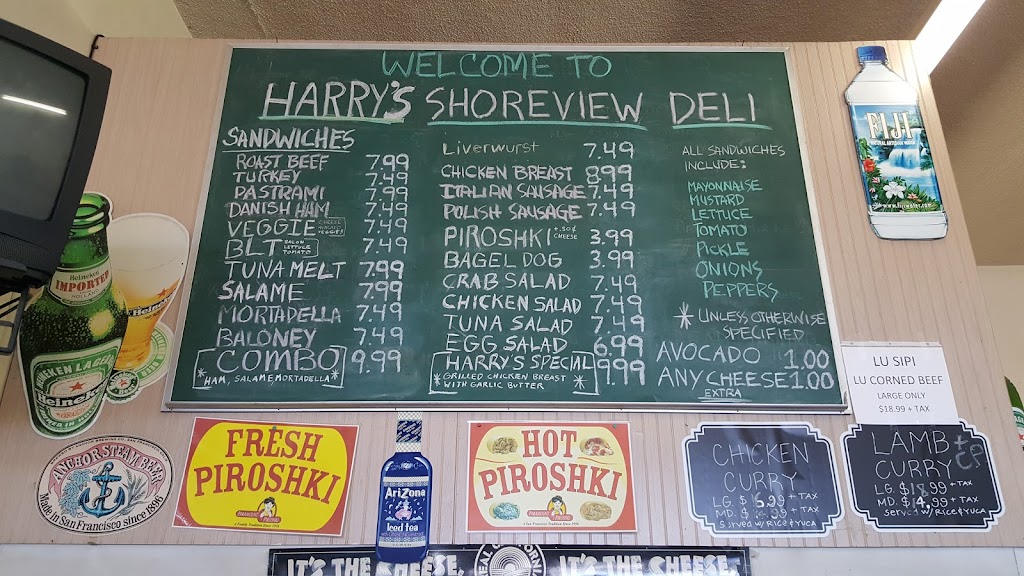 WELCOME TO
HARRY'S SHOREVIEW DELI
SANDWICHES
ROAST BEEF 7.99
TURKEY 7.49
PASTRAMI 7.99
DANISH HAM 7.49
VEGGIE CHEESE AVOCADO VEGGIES 7.49
BLT BACON LETTUCE TOMATO 7.49
TUNA MELT 7.99
SALAME 7.99
MORTADELLA 7.49
BALONEY 7.49
COMBO 9.99
*HAM, SALAME MORTADELLA*
Liverwurst 7.49
CHICKEN BREAST 8.99
ITALIAN SAUSAGE 7.49
POLISH SAUSAGE 7.49
PIROSHKI +.50¢ CHEESE 3.99
BAGEL DOG 3.99
CRAB SALAD 7.49
CHICKEN SALAD 7.49
TUNA SALAD 7.49
EGG SALAD 6.99
HARRY'S SPECIAL 9.99
*GRILLED CHICKEN BREAST
WITH GARLIC BUTTER*
ALL SANDWICHES
INCLUDE:
MAYONNAISE
MUSTARD
LETTUCE
TOMATO
PICKLE
ONIONS
PEPPERS
* UNLESS OTHERWISE
SPECIFIED *
AVOCADO 1.00
ANY CHEESE 1.00
EXTRA
FIJI
NATURAL ARTESIAN WATER
www.fijiwater.com
Heineken
IMPORTED
HOLLAND
Heineken
HEINEKEN LAGER
Heineken
LU SIPI
LU CORNED BEEF
LARGE ONLY
$18.99 + TAX
ANCHOR STEAM BEER
Made in San Francisco since 1896
FRESH
PIROSHKI
A Family Tradition Since 1956
AriZona
Iced Tea
HOT
PIROSHKI
A San Francisco Tradition Since 1956
CHICKEN
CURRY
LG. $ 16.99 + TAX
MD. $ 12.99 + TAX
Served w/RICE & YUCA
LAMB
CURRY
LG. $18.99 + TAX
MD. $14.99 + TAX
Served w/RICE & YUCA
IT'S THE CHEESE. REAL CALIFORNIA IT'S THE CHEESE.